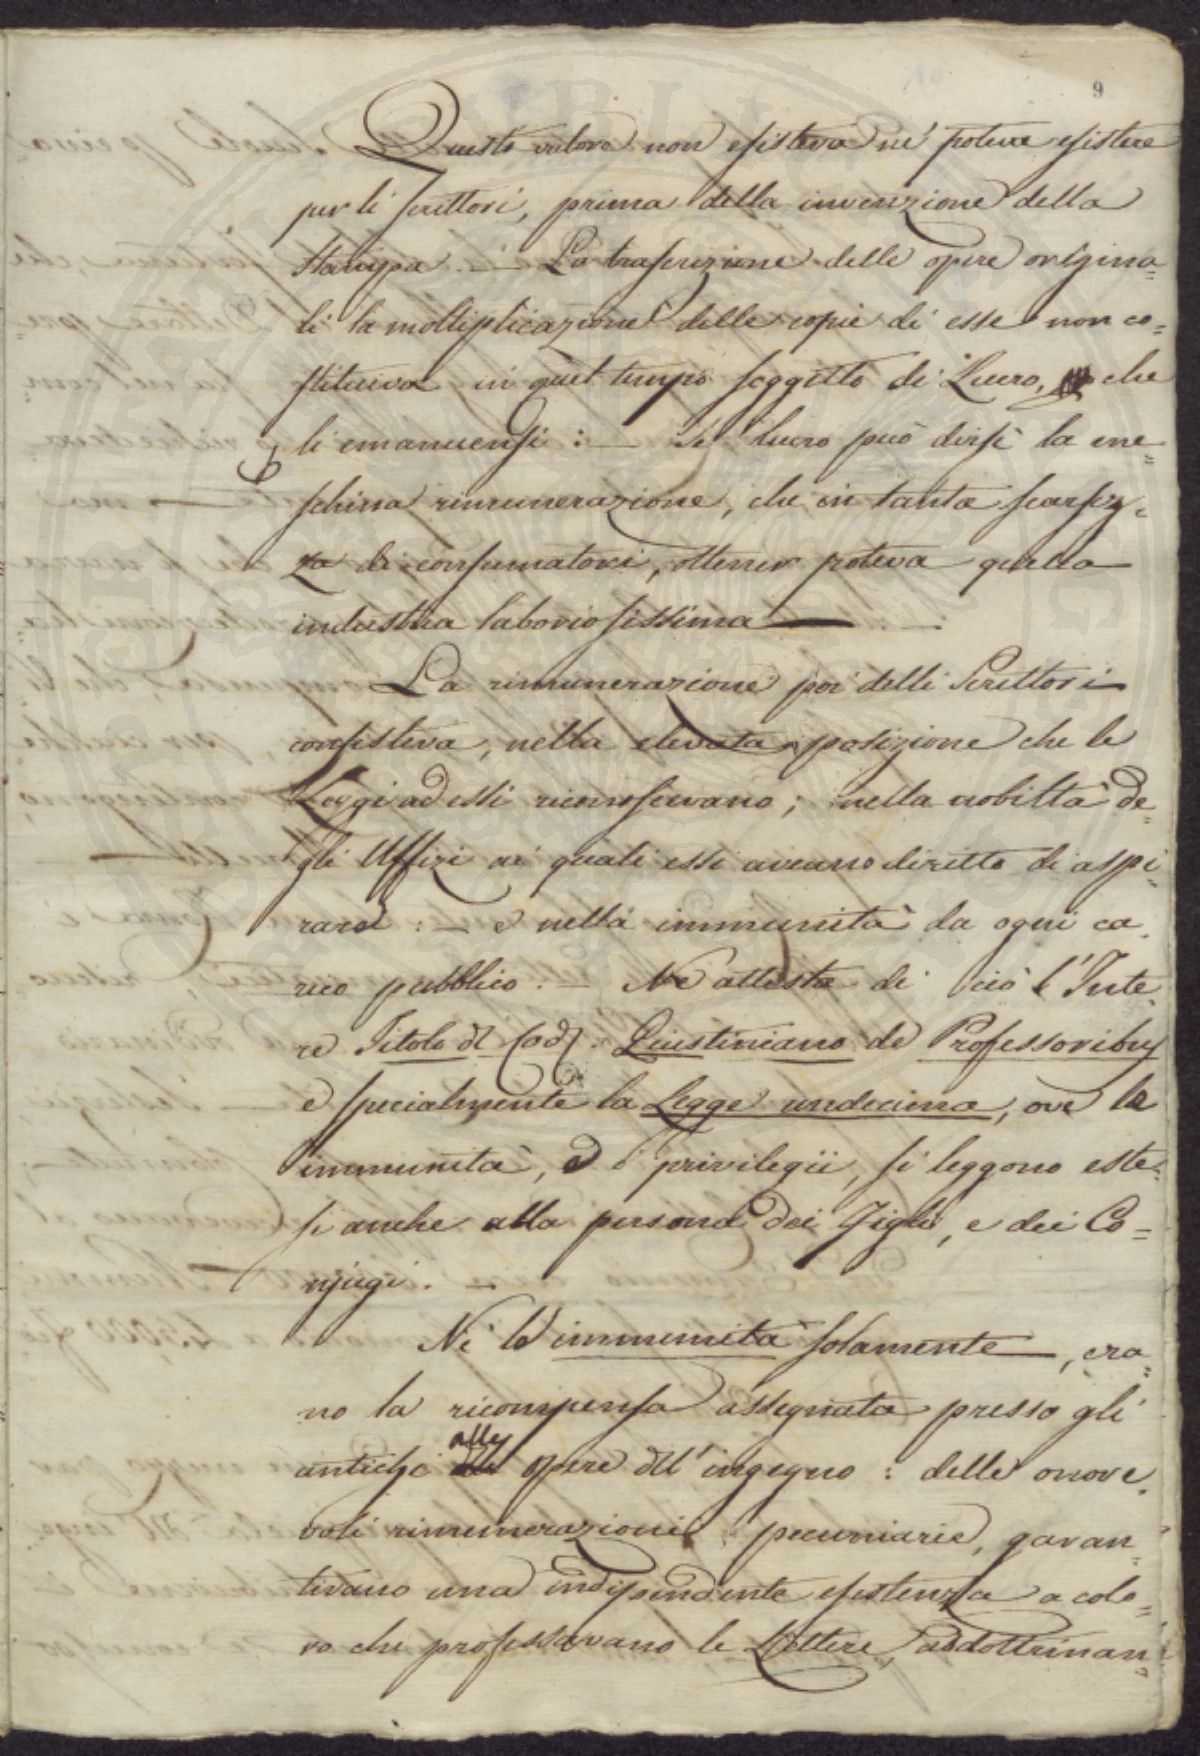 9
Questo valore non esisteva nè poteva esistere
per li scrittori, prima della invenzione della
Stampa. — La trascrizione delle opere origina=
li la moltiplicazione delle copie di esse non co=
stituiva in quel tempo soggetto di Lucro, che
li emanuensi : — se lucro può dirsi la me=
schina rimunerazione, che in tanta scarsez=
za di consumatori, ottener poteva quella
industria laboriosissima —
La rimunerazione poi delli Scrittori
consisteva, nella elevata posizione che le
Leggi ad essi riconoscevano ; nella nobiltà de=
gli Uffizi ai quali essi aveano diritto di aspi=
rare : — e nella immunità da ogni ca=
rico pubblico. — Ne attesta di ciò l'Inte=
re Titolo del Cod: Giustiniano de Professoribus
e specialmente la Legge undecima, ove le
immunità, e i privilegii, si leggono este=
si anche alla persona dei Figli, e dei Co=
njugi. —
Nè le immunità solamente, era=
no la ricompensa assegnata presso gli
antichi alle opere dell'ingegno : delle onore=
voli rimunerazioni pecuniarie, garan=
tivano una indipendente esistenza a colo=
ro che professavano le Lettere, addottrinan=